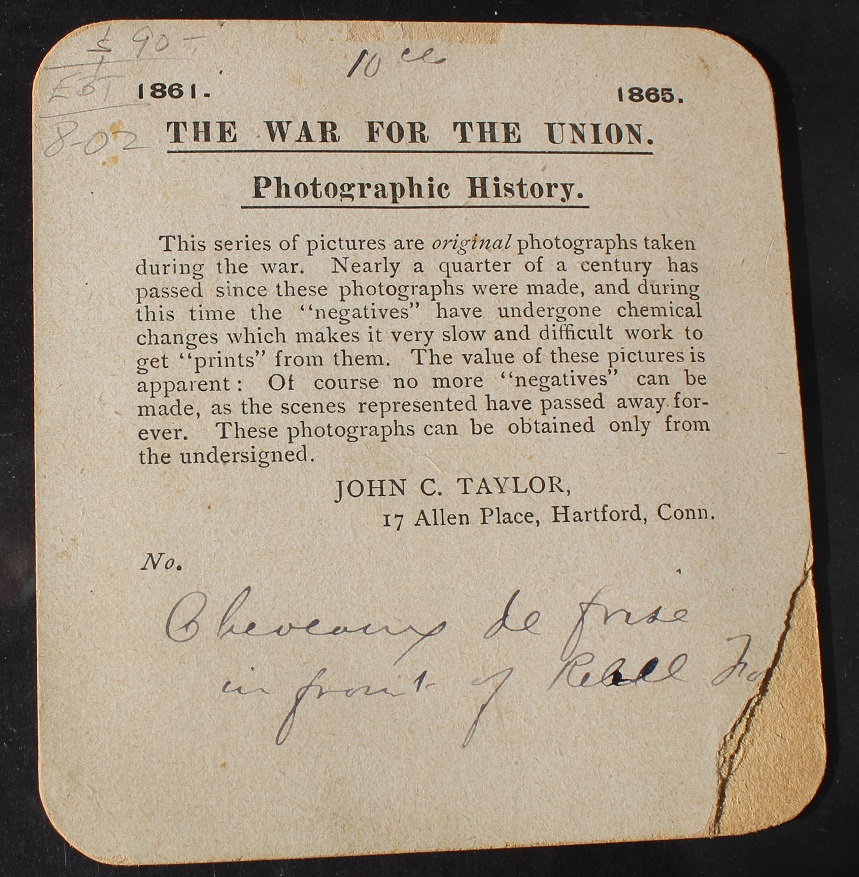 $ 90-
10 cts
EST
1861. 1865.
8-02
THE WAR FOR THE UNION.
Photographic History.
This series of pictures are original photographs taken
during the war. Nearly a quarter of a century has
passed since these photographs were made, and during
this time the "negatives" have undergone chemical
changes which makes it very slow and difficult work to
get "prints" from them. The value of these pictures is
apparent: Of course no more "negatives" can be
made, as the scenes represented have passed away for-
ever. These photographs can be obtained only from
the undersigned.
JOHN C. TAYLOR,
17 Allen Place, Hartford, Conn.
No.
Cheveaux de frise
in front of Rebell